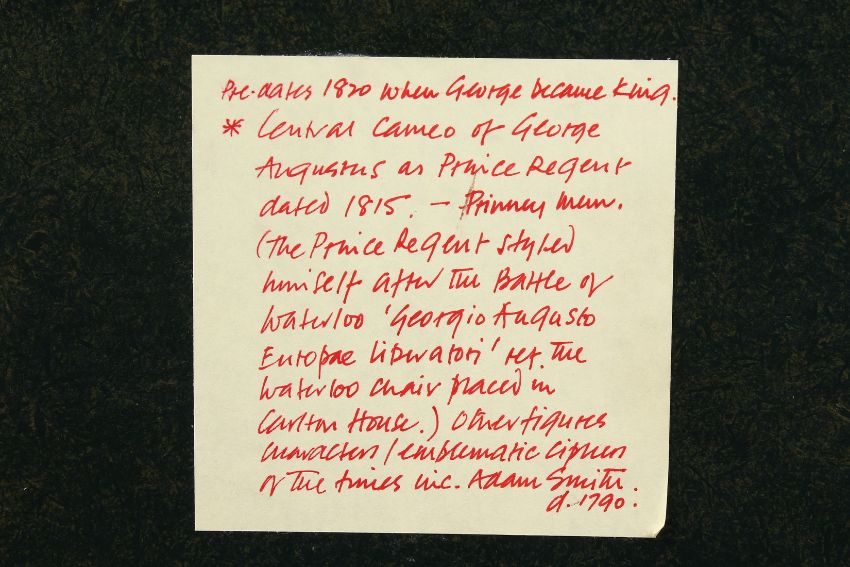 Pre-dates 1820 when George became King.
* Central Cameo of George
Augustus as Prince Regent
dated 1815. – Prinney
(The Prince Regent styled
himself after the Battle of
Waterloo 'Georgio Augusto
Europae Liberatori' ref. the
Waterloo chair placed in
Carlton House.) Other figures
characters / emblematic ciphers
of the times inc. Adam Smith.
d. 1790.